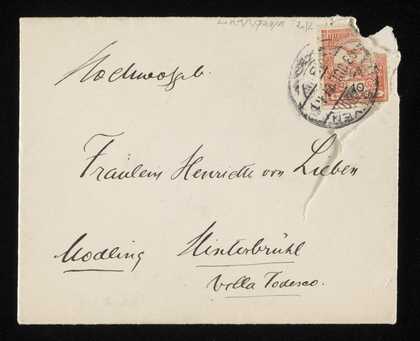 Hochwolgeb.
Fräulein Henriette von Lieben
Modling Hinterbrühl
Villa Todesco.